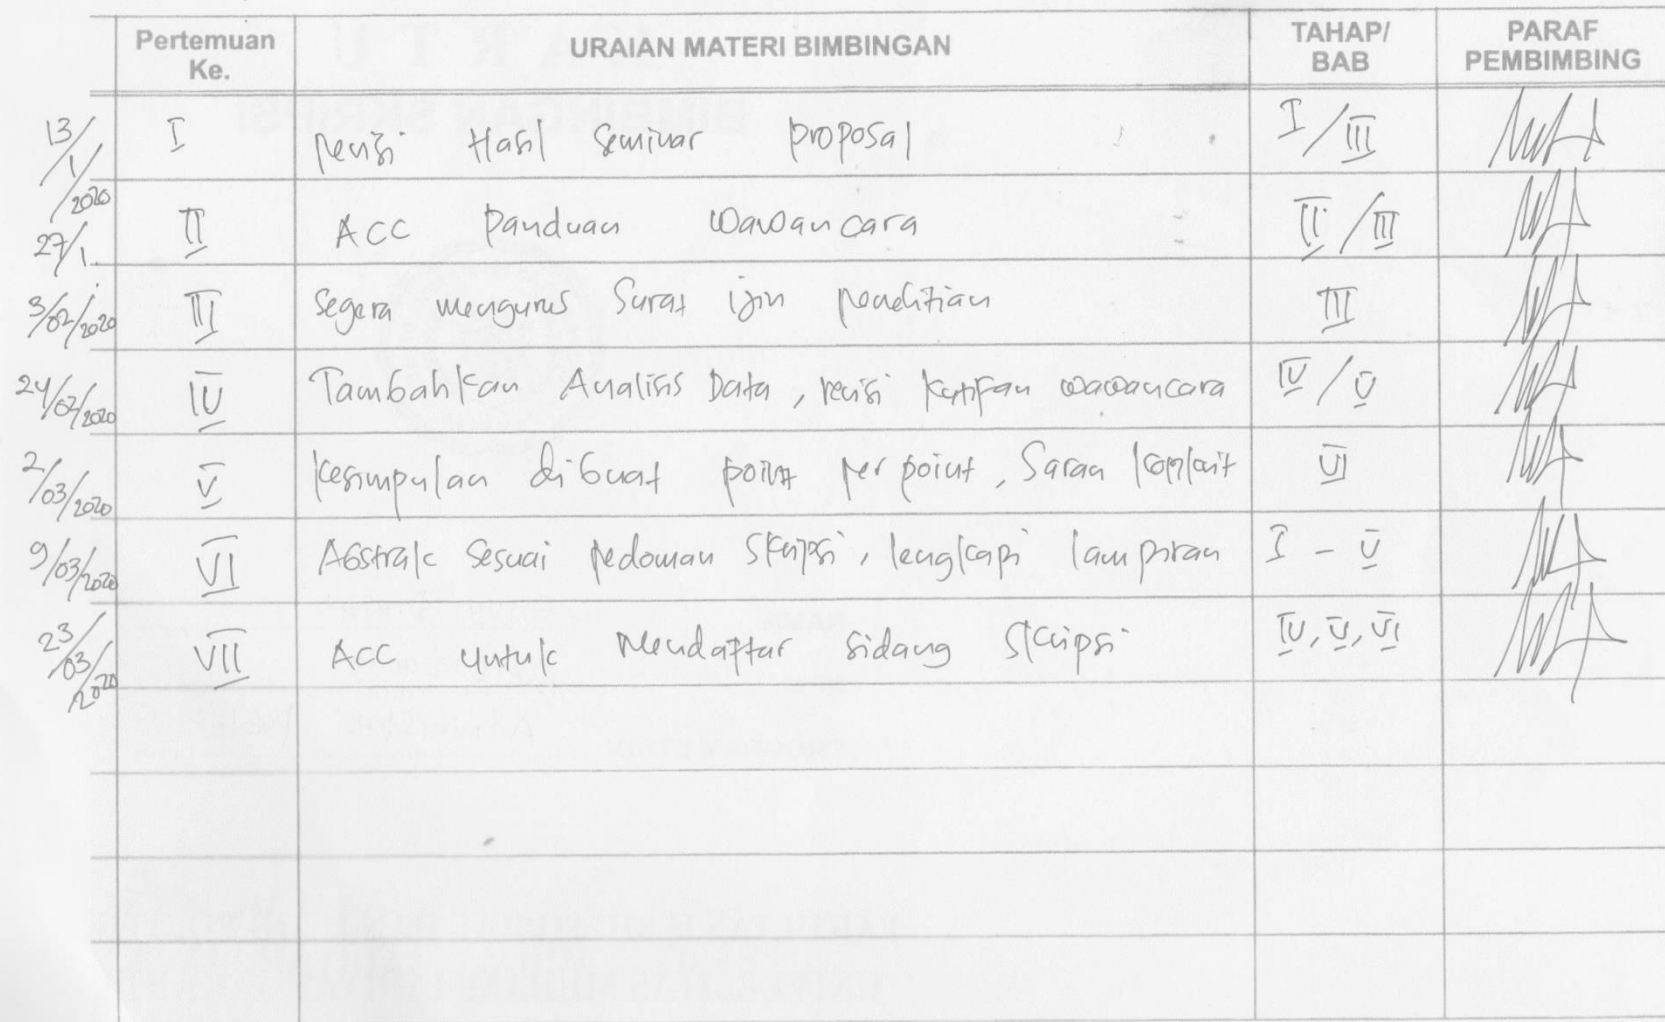 Pertemuan Ke. URAIAN MATERI BIMBINGAN TAHAP/ BAB PARAF PEMBIMBING
13/1/2020 I revisi Hasil Seminar proposal I/III
27/1. II ACC Panduan wawancara II/III
3/02/2020 III Segera mengurus Surat ijin penelitian III
24/02/2020 IV Tambahkan Analisis Data, revisi Kutipan wawancara IV/V
2/03/2020 V Kesimpulan dibuat point per point, Saran VI
9/03/2020 VI Abstrak Sesuai pedoman Skripsi, lengkapi lampiran I - V
23/03/2020 VII ACC untuk Mendaftar sidang Skripsi IV, V, VI